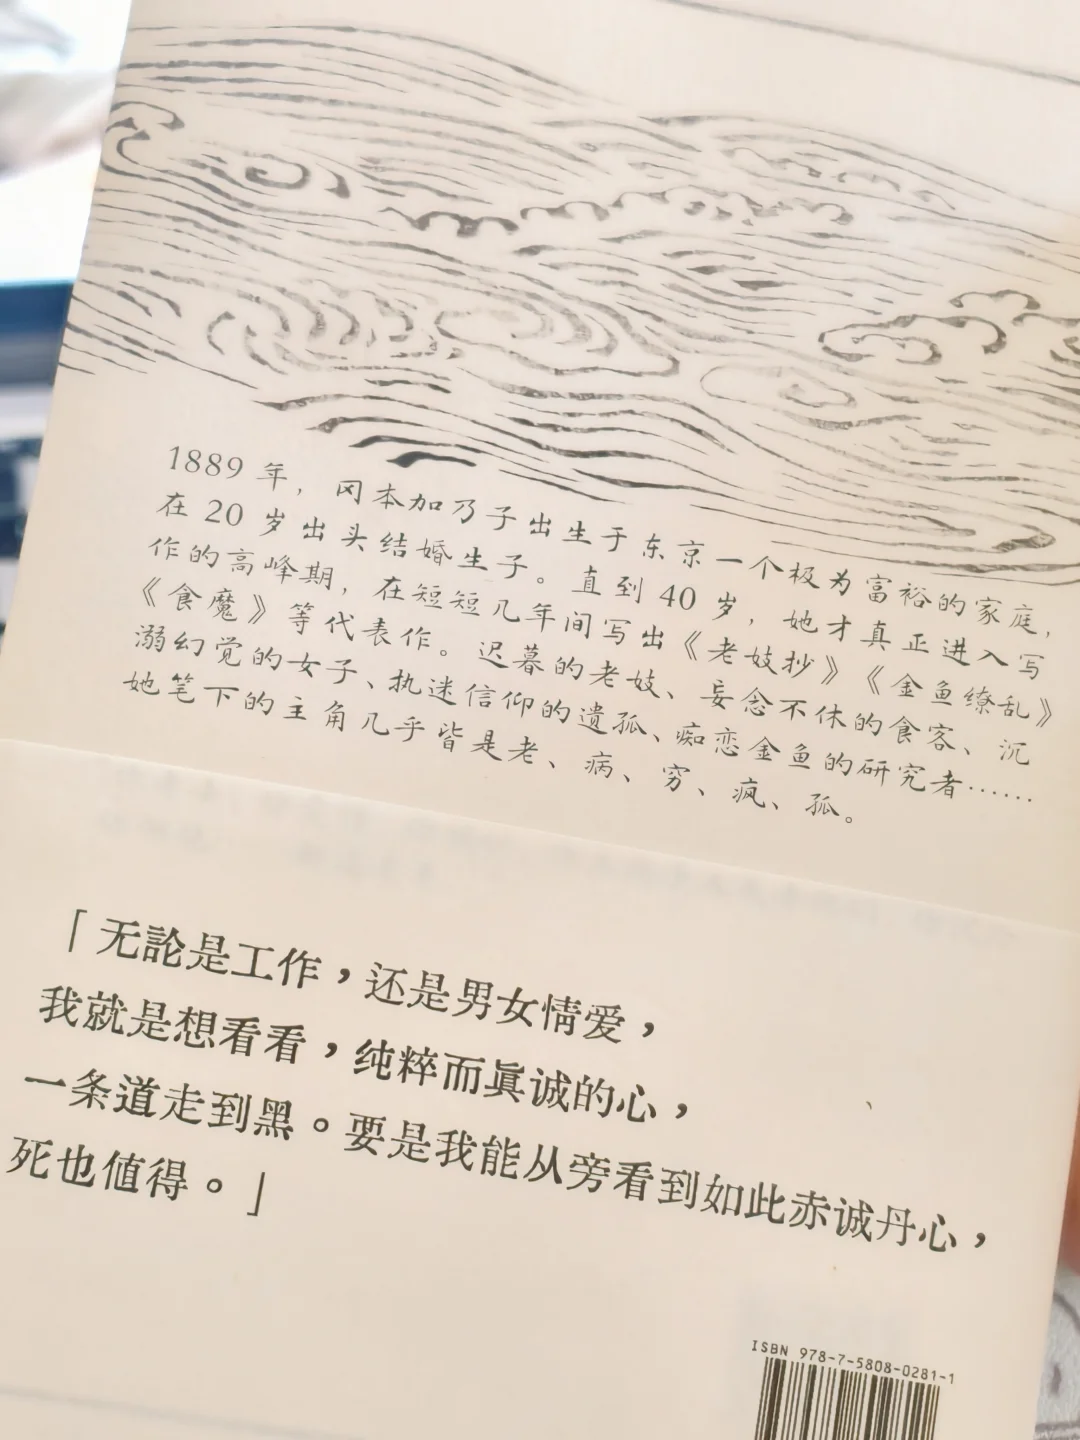 1889 年，冈本加乃子出生于东京一个极为富裕的家庭，
在 20 岁出头结婚生子。直到 40 岁，她才真正进入写
作的高峰期，在短短几年间写出《老妓抄》《金鱼缭乱》
《食魔》等代表作。迟暮的老妓、妄念不休的食客、沉
溺幻觉的女子、执迷信仰的遗孤、痴恋金鱼的研究者……
她笔下的主角几乎皆是老、病、穷、疯、孤。
「无論是工作，还是男女情爱，
我就是想看看，纯粹而眞诚的心，
一条道走到黑。要是我能从旁看到如此赤诚丹心，
死也值得。」
ISBN 978-7-5808-0281-1